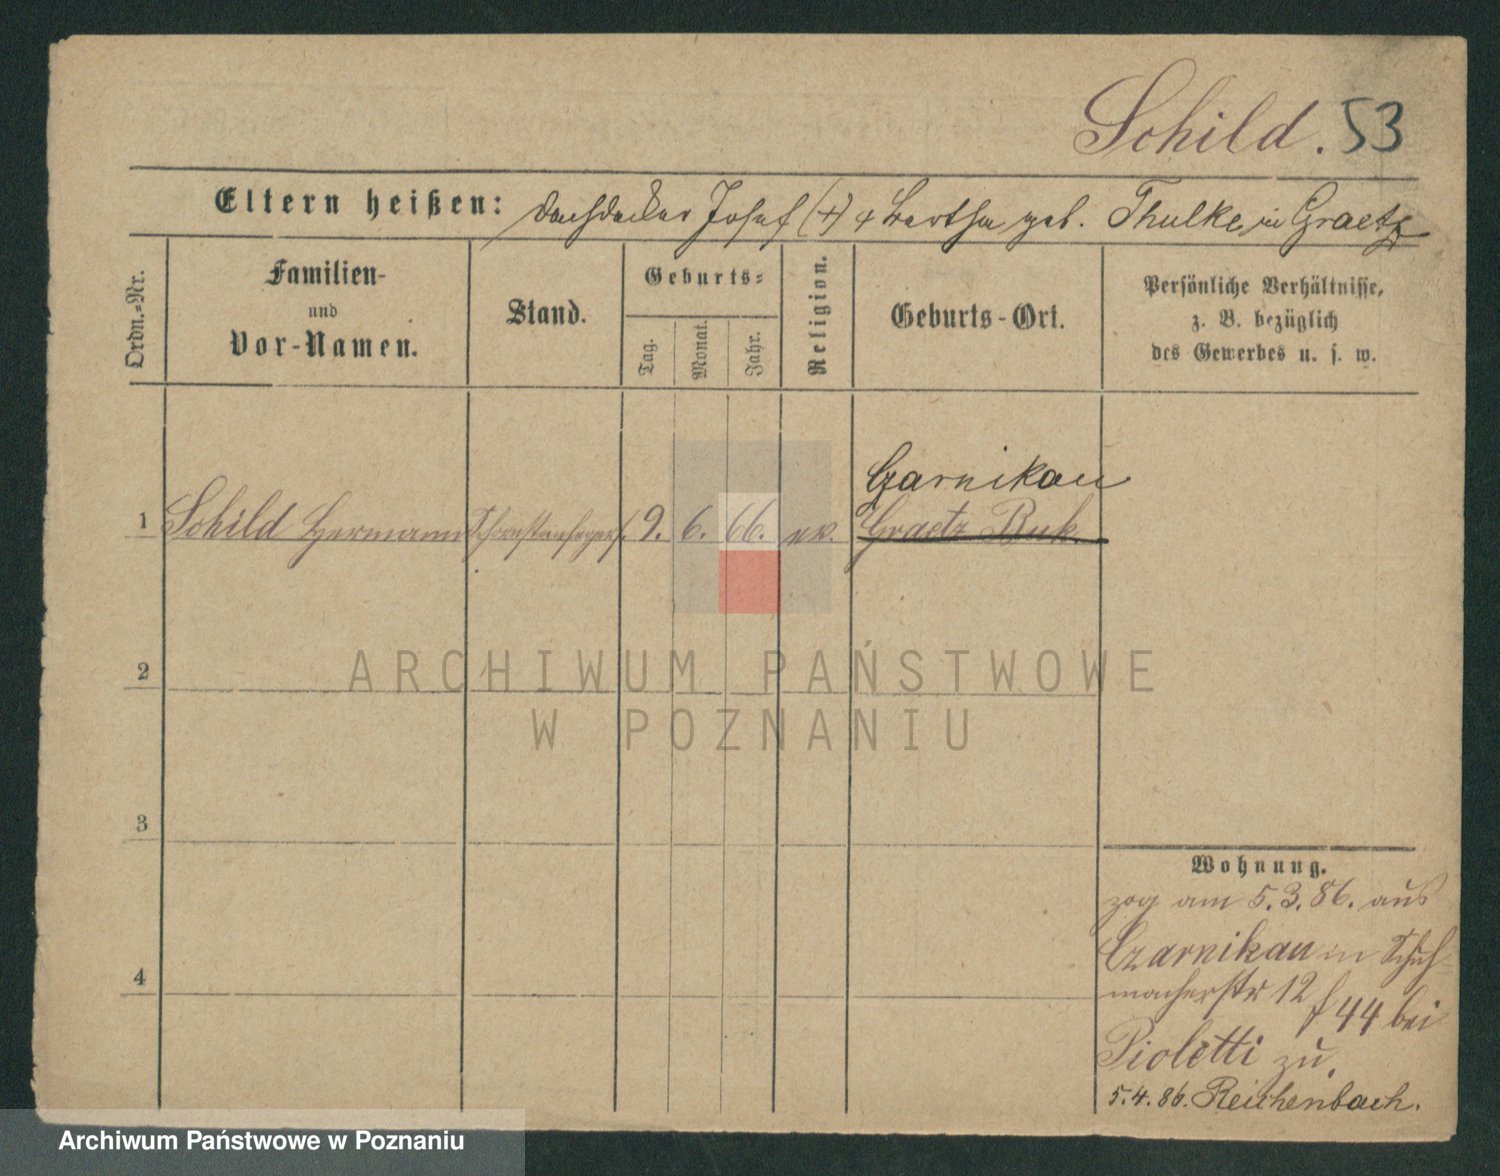 Schild. 53
Eltern heißen: Dachdecker Josef (+) & Bertha geb. Thulke in Graetz
Ordn.-Nr.
Familien-
und
Vor-Namen.
Stand.
Geburts-
Tag.
Monat.
Jahr.
Religion.
Geburts-Ort.
Persönliche Verhältnisse,
z. B. bezüglich
des Gewerbes u. s. w.
Czarnikau
1 Schild Hermann Schornsteinfegerf. 9. 6. 66. ev. Graetz Buk.
2
3
4
Wohnung.
zog am 5.3.86. aus
Czarnikau in Schuh-
macherstr 12
44 bei
Pioletti zu.
5.4.86. Reichenbach.
ARCHIWUM PAŃSTWOWE
W POZNANIU
Archiwum Państwowe w Poznaniu